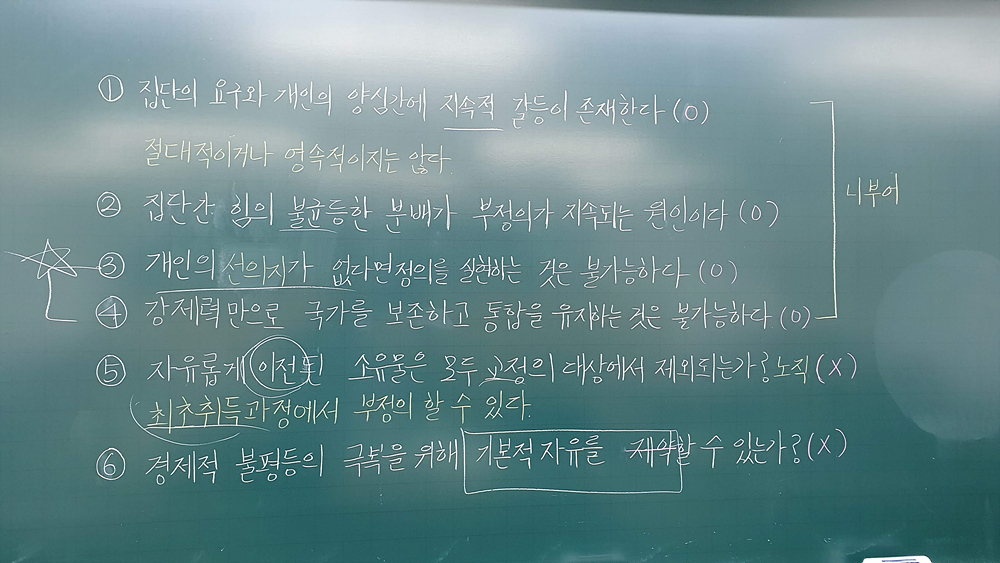 ① 집단의 요구와 개인의 양심간에 지속적 갈등이 존재한다 (O)
절대적이거나 영속적이지는 않다.
② 집단간 힘의 불균등한 분배가 부정의가 지속되는 원인이다 (O)
니부어
③ 개인의 선의지가 없다면 정의를 실현하는 것은 불가능하다 (O)
④ 강제력만으로 국가를 보존하고 통합을 유지하는 것은 불가능하다 (O)
⑤ 자유롭게 이전된 소유물은 모두 교정의 대상에서 제외되는가? 노직 (X)
최초취득과정에서 부정의 할 수 있다.
⑥ 경제적 불평등의 극복을 위해 기본적 자유를 제약할 수 있는가? (X)